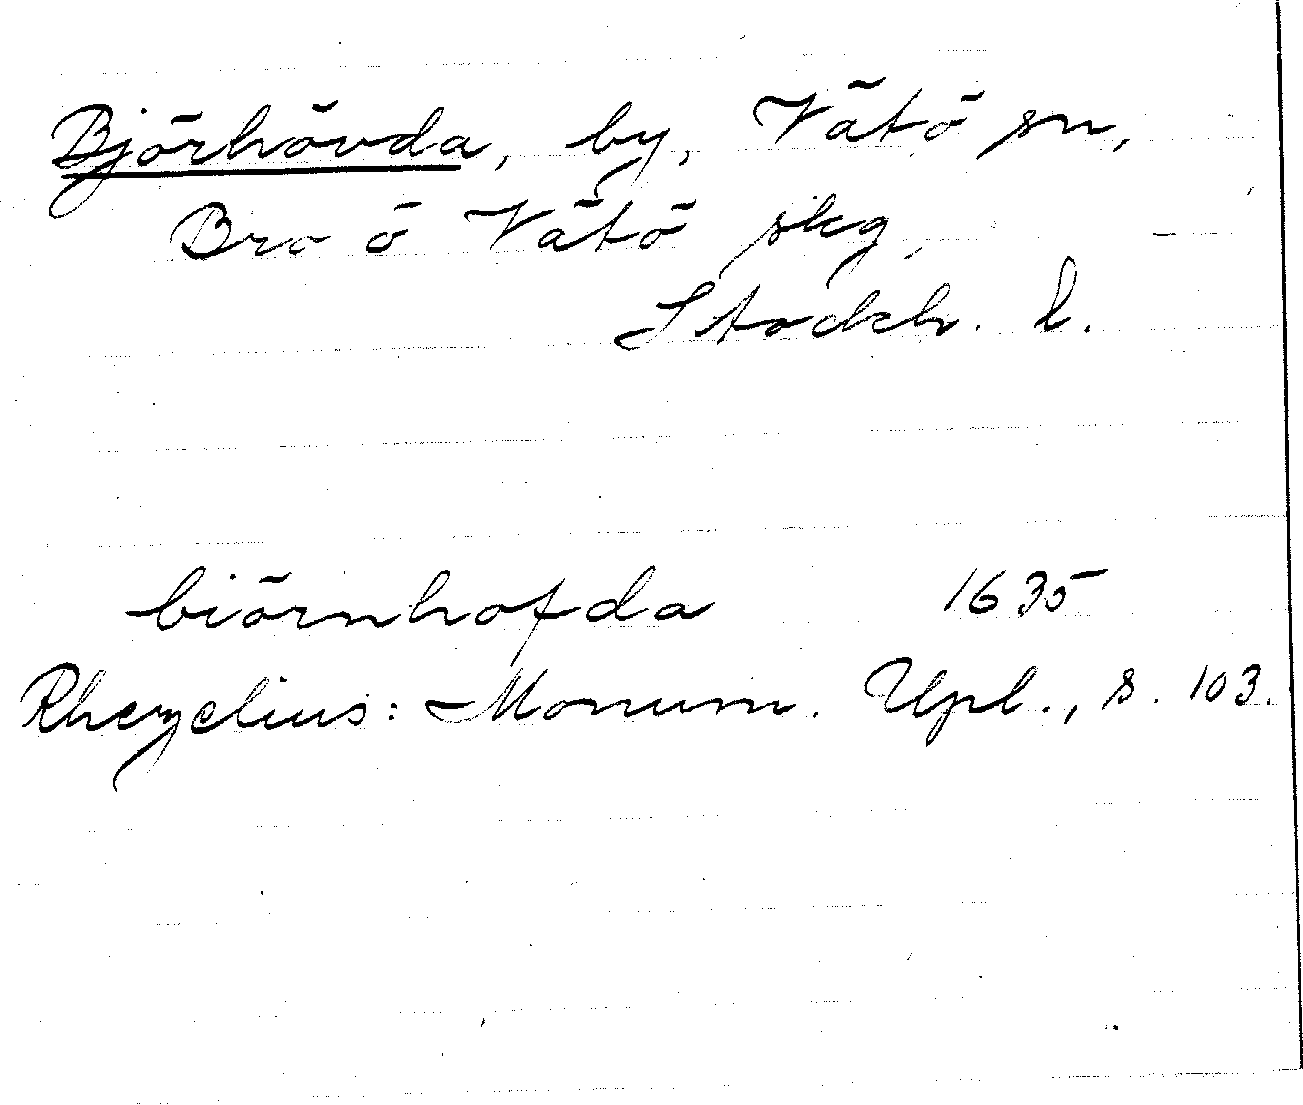 Björhövda, by, Vätö sn,
Bro o Vätö skg,
Stockh. l.
biörnhofda 1635
Rhezelius: Monum. Upl., s. 103.